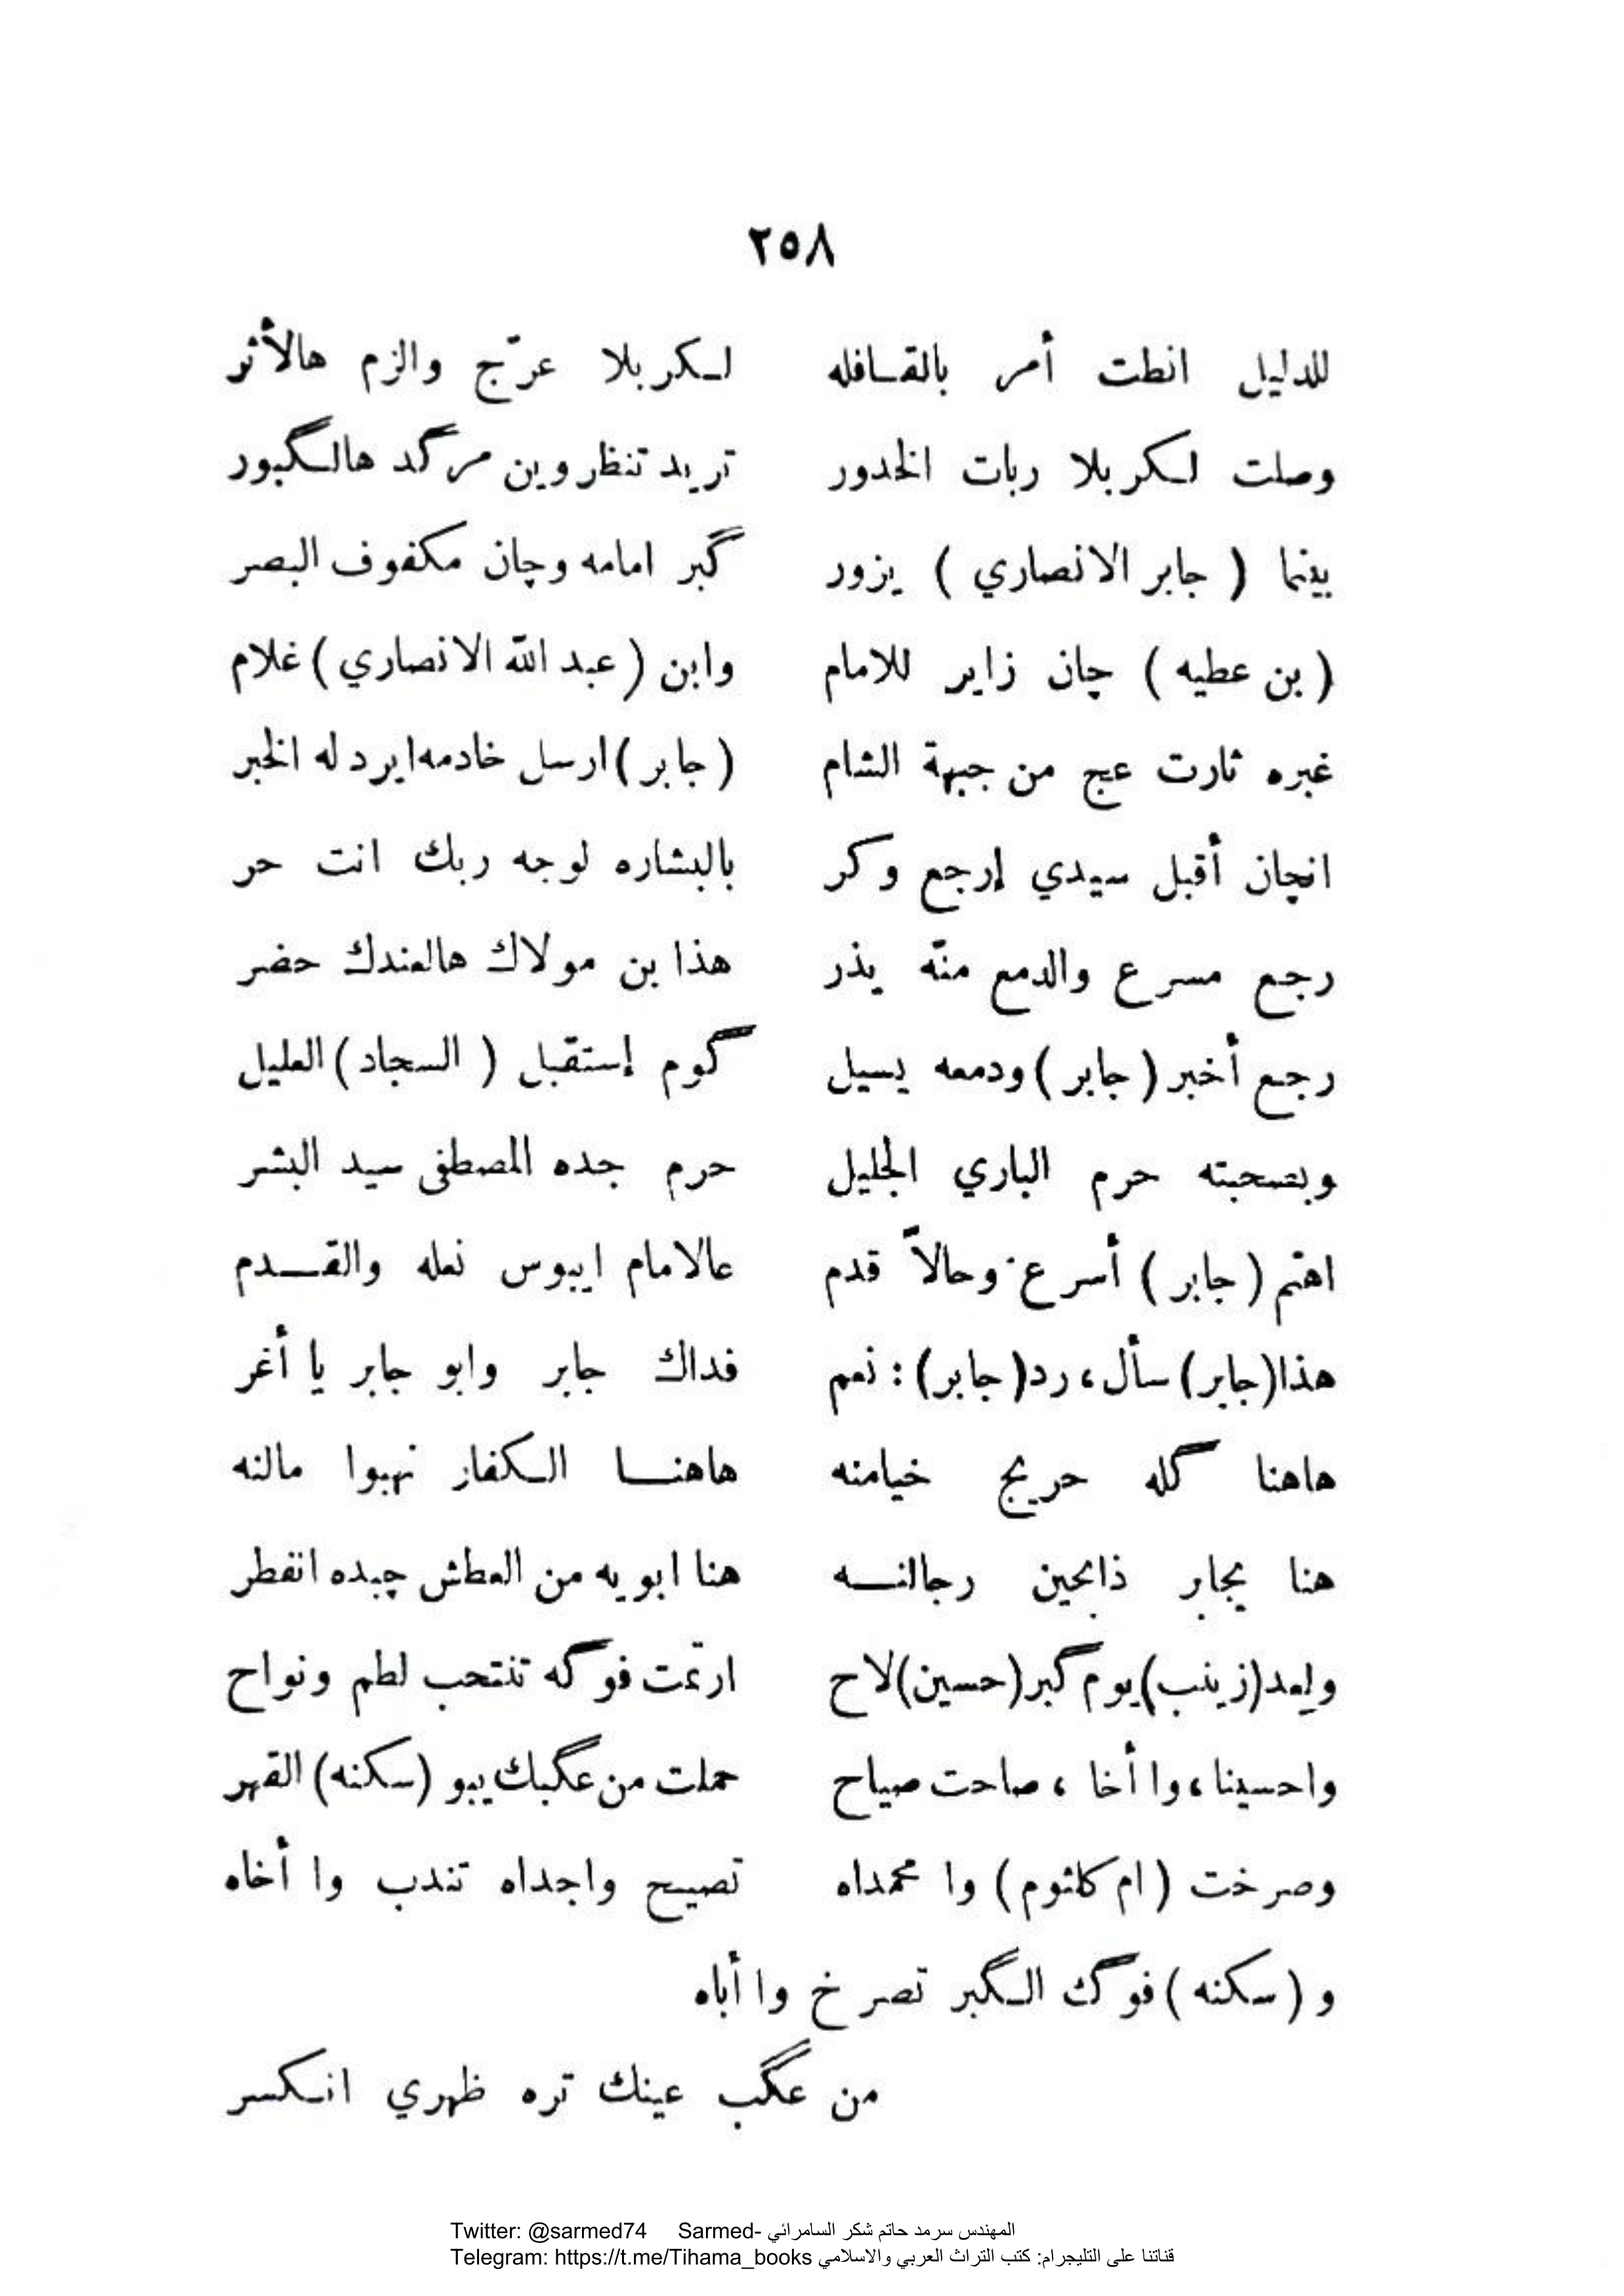 ٢٥٨
للدليل انطت أمر بالقـافله لـكربلا عرّج والزم هالأثر
وصلت لـكربلا ربات الخدور تريد تنظر وين مرگد هالـگبور
بينما ( جابر الانصاري ) يزور گبر امامه وچان مكفوف البصر
( بن عطيه ) چان زاير للامام وابن ( عبد الله الانصاري ) غلام
غبره ثارت عج من جبهة الشام ( جابر ) ارسل خادمه ايرد له الخبر
انچان أقبل سيدي إرجع وكر بالبشاره لوجه ربك انت حر
رجع مسرع والدمع منّه يذر هذا بن مولاك هالعندك حضر
رجع أخبر ( جابر ) ودمعه يسيل گوم إستقبل ( السجاد ) العليل
وبصحبته حرم الباري الجليل حرم جده المصطفى سيد البشر
اهتم ( جابر ) أسرع وحالاً قدم عالامام ايبوس نعله والقـــدم
هذا (جابر) سأل، رد (جابر) : نعم فداك جابر وابو جابر يا أغر
هاهنا گله حريج خيامنه هاهنـــا الـكفار نهبوا مالنه
هنا يجابر ذابحين رجالنـــه هنا ابويه من العطش چبده انفطر
ولعد (زينب) يوم گبر (حسين) لاح ارتمت فوگه تنتحب لطم ونواح
واحسينا، وا أخا ، صاحت صياح حملت من عگبك يبو (سكنه) القهر
وصرخت ( ام كلثوم ) وا محمداه تصيح واجداه تندب وا أخاه
و ( سكنه ) فوگ الـگبر تصرخ وا أباه
من عگب عينك تره ظهري انـكسر
Twitter: @sarmed74 Sarmed- المهندس سرمد حاتم شكر السامرائي
Telegram: https://t.me/Tihama_books قناتنا على التليجرام: كتب التراث العربي والاسلامي